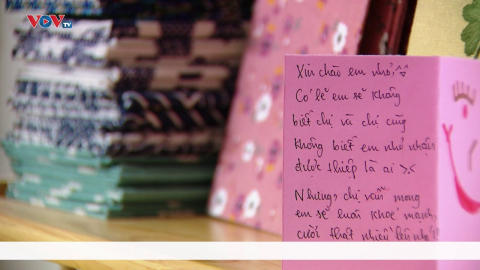 VOV TV
Xin chào em nhỏ, ^^
Có lẽ em sẽ không
biết chị và chị cũng
không biết em nhỏ nhận
được thiệp là ai >.<
Nhưng, chị vẫn mong
em sẽ luôn khoẻ mạnh,
cười thật nhiều lên nhé!